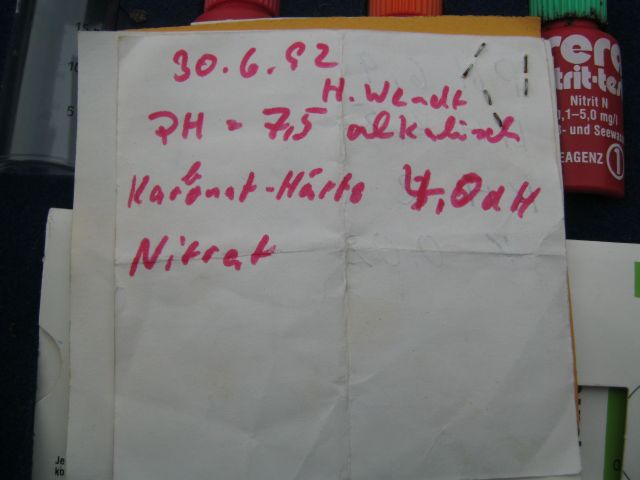 30.6.92
H. Wendt
PH = 7,5 alkalisch
Karbonat-Härte 4,0 dH
Nitrat
sera
trit-tes
Nitrit N
,1-5,0 mg/l
- und Seewa
EAGENZ 1
10
5
Je
ko